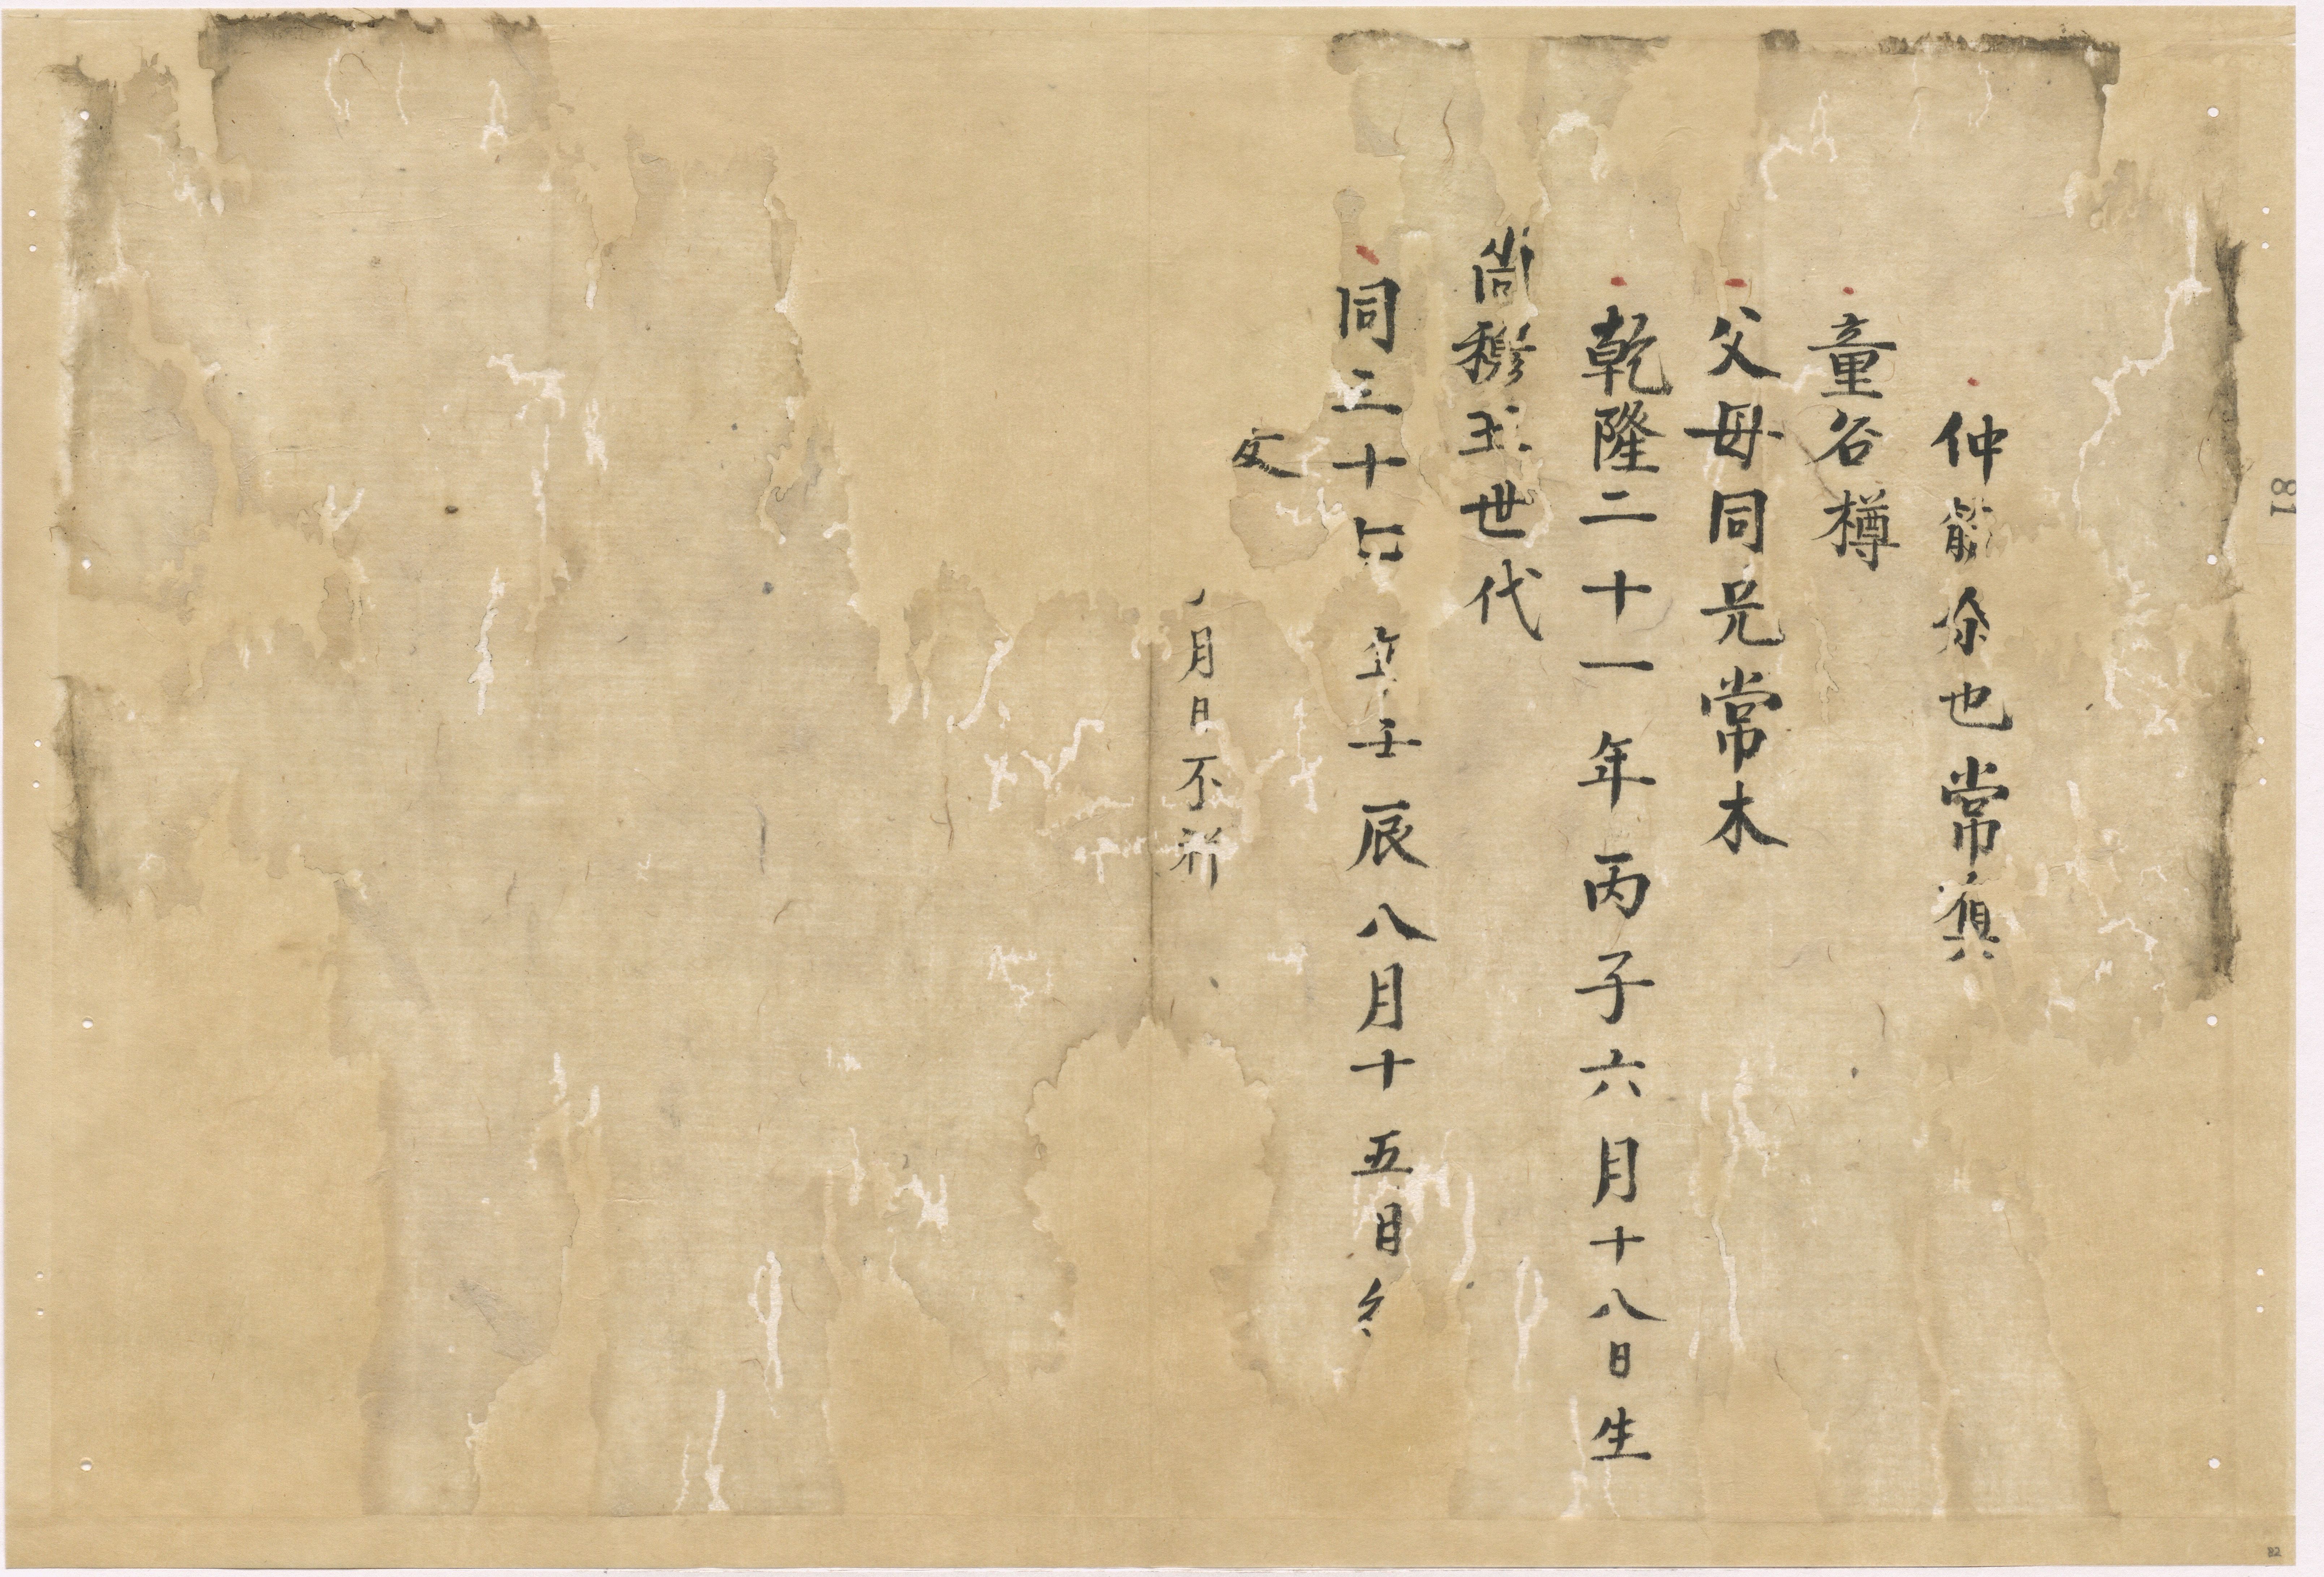 仲筑登之常真
童名樽
父母同兄常木
乾隆二十一年丙子六月十八日生
尚穆王世代
同三十七年壬辰八月十五日
月日不
81
82